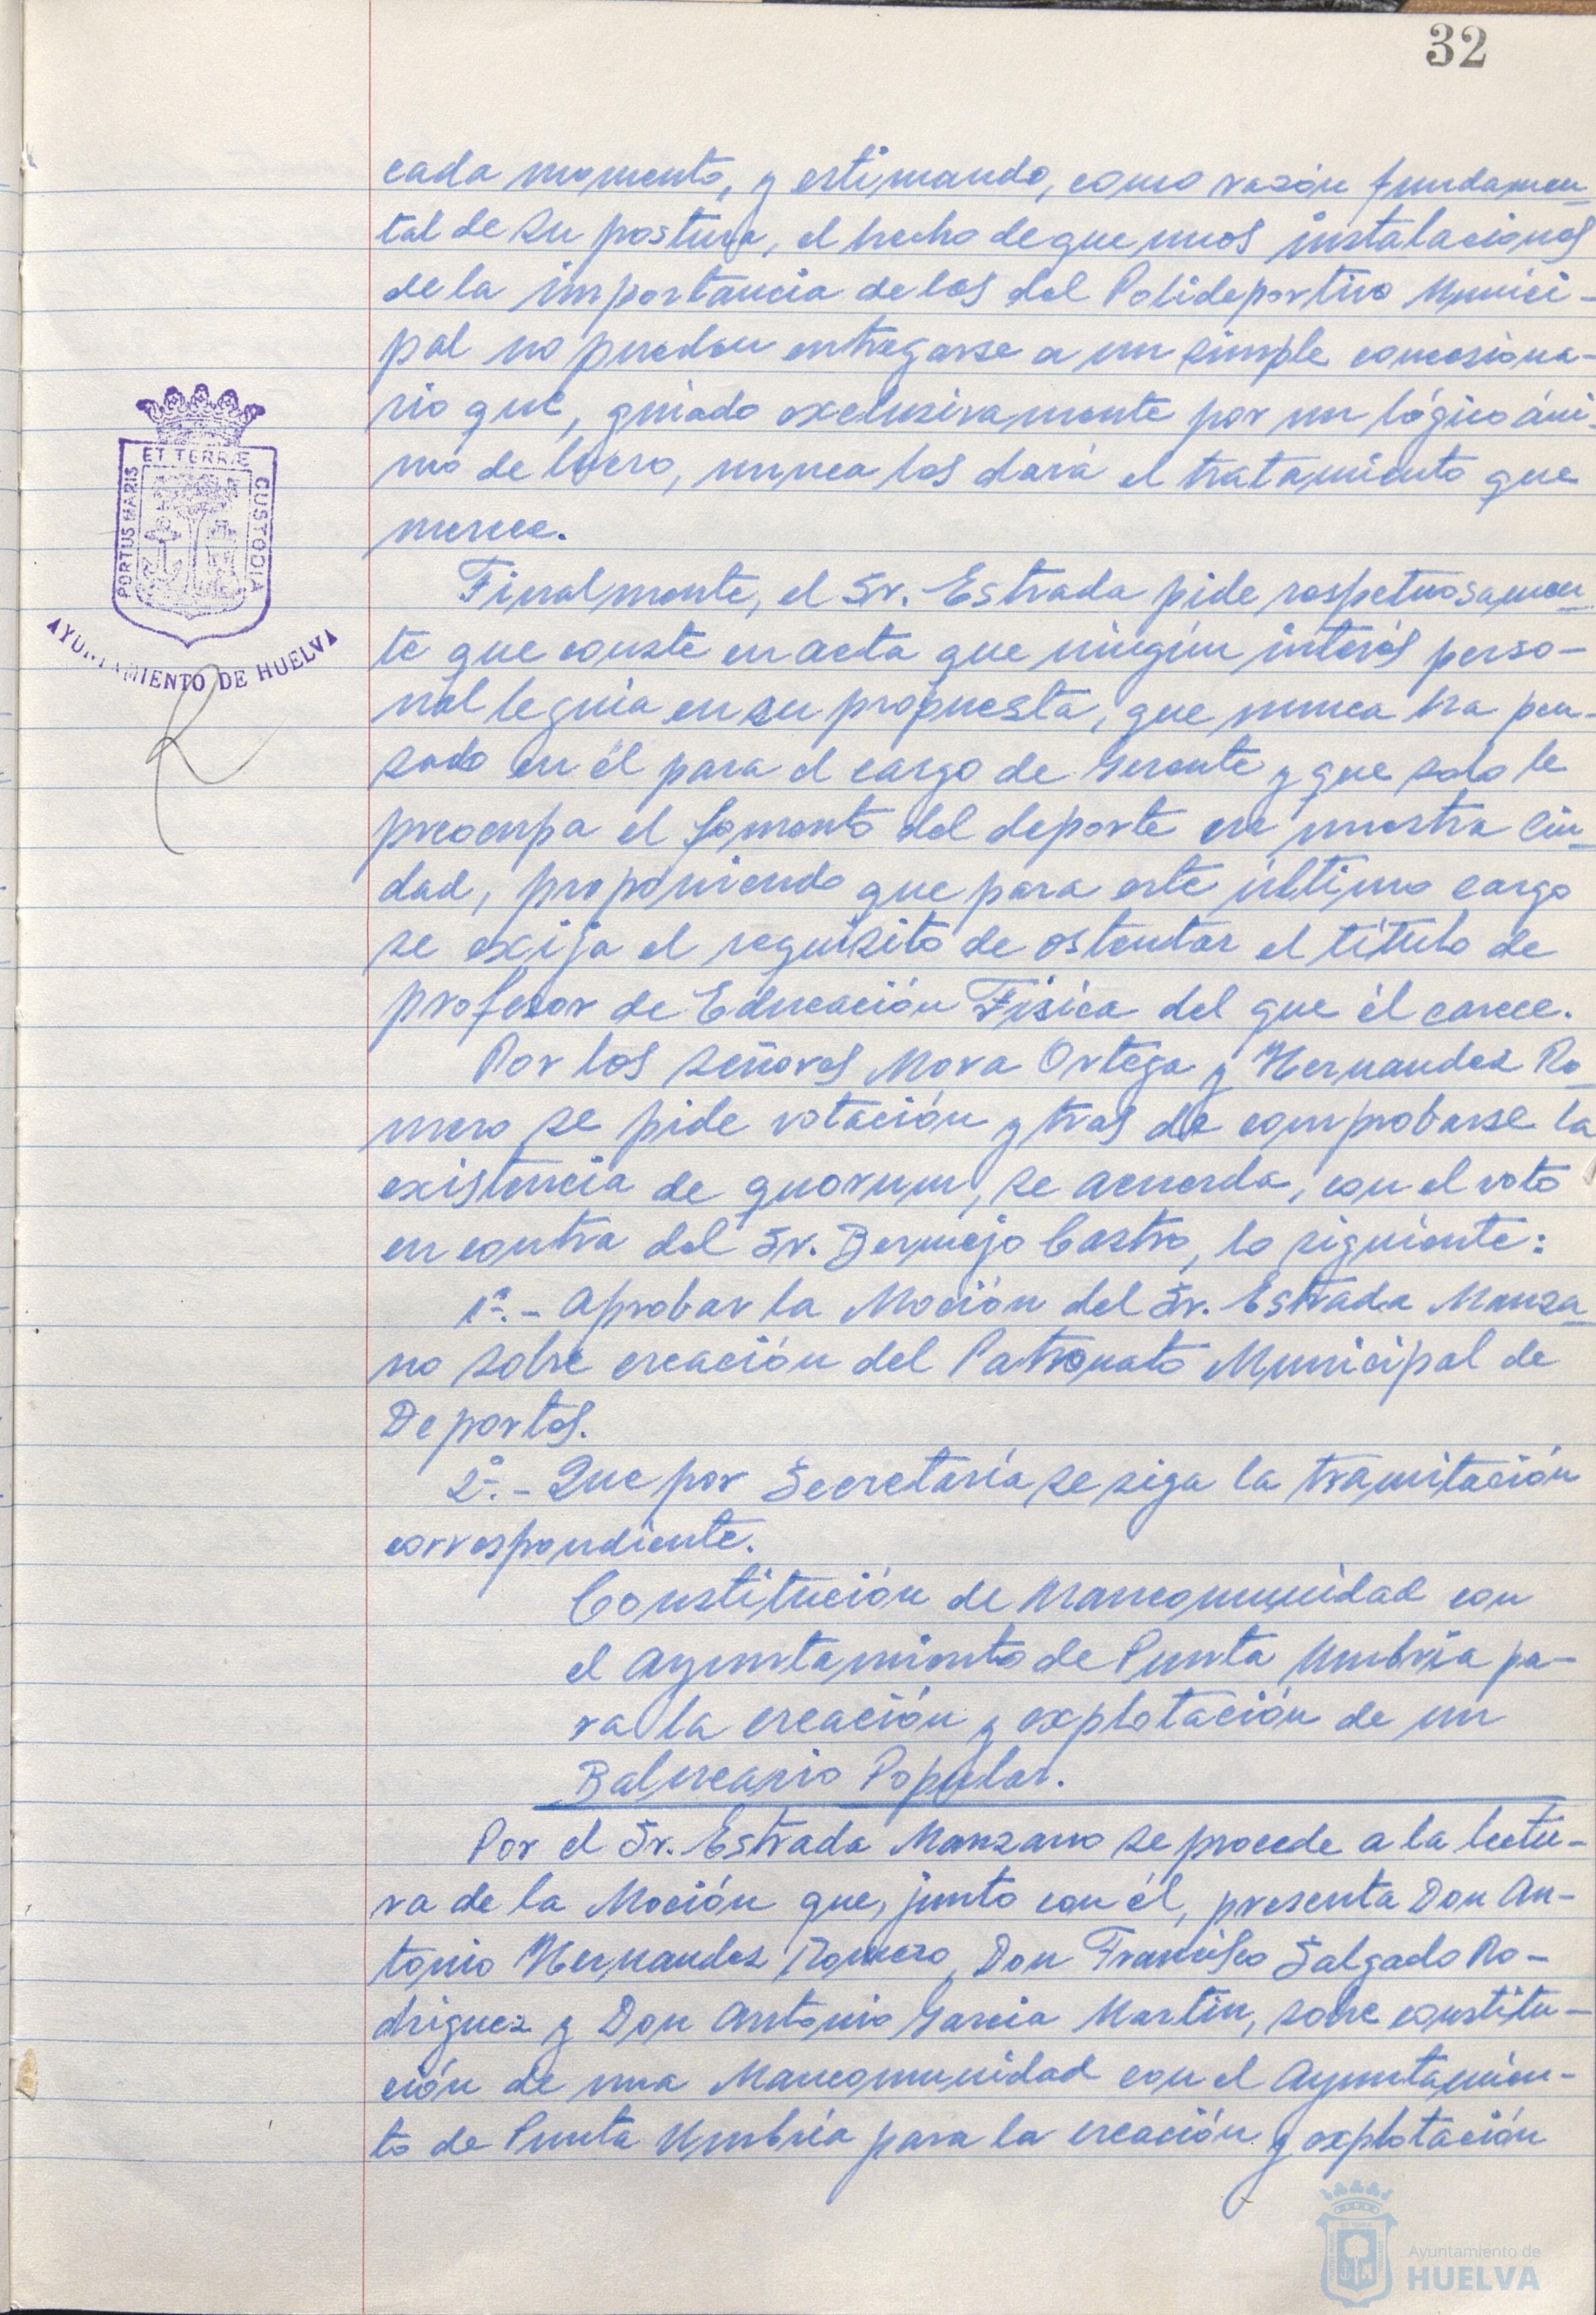 32
cada momento, y estimando, como razón fundamen-
tal de su postura, el hecho de que unas instalaciones
de la importancia de las del Polideportivo Munici-
pal no pueden entregarse a un simple concesiona-
rio que, guiado exclusivamente por un lógico áni-
mo de lucro, nunca las dará el tratamiento que
merece.
Finalmente, el Sr. Estrada pide respetuosamen-
te que conste en acta que ningún interés perso-
nal le guía en su propuesta, que nunca ha pen-
sado en él para el cargo de Gerente y que solo le
preocupa el fomento del deporte en nuestra Ciu-
dad, proponiendo que para este último cargo
se exija el requisito de ostentar el título de
profesor de Educación Física del que él carece.
Por los señores Mora Ortega y Hernandez Ro-
mero se pide votación y tras de comprobarse la
existencia de quorum, se acuerda, con el voto
en contra del Sr. Bermejo Castro, lo siguiente:
1º.- Aprobar la Moción del Sr. Estrada Manza-
no sobre creación del Patronato Municipal de
Deportes.
2º.- Que por Secretaría se siga la tramitación
correspondiente.
Constitución de Mancomunidad con
el Ayuntamiento de Punta Umbría pa-
ra la creación y explotación de un
Balneario Popular.
Por el Sr. Estrada Manzano se procede a la lectu-
ra de la Moción que, junto con él, presenta Don An-
tonio Hernandez Romero, Don Francisco Salgado Ro-
driguez y Don Antonio Garcia Martin, sobre constitu-
ción de una Mancomunidad con el Ayuntamien-
to de Punta Umbría para la creación y explotación
PORTUS MARIS
ET TERRÆ
CUSTODIA
AYUNTAMIENTO DE HUELVA
Ayuntamiento de
HUELVA